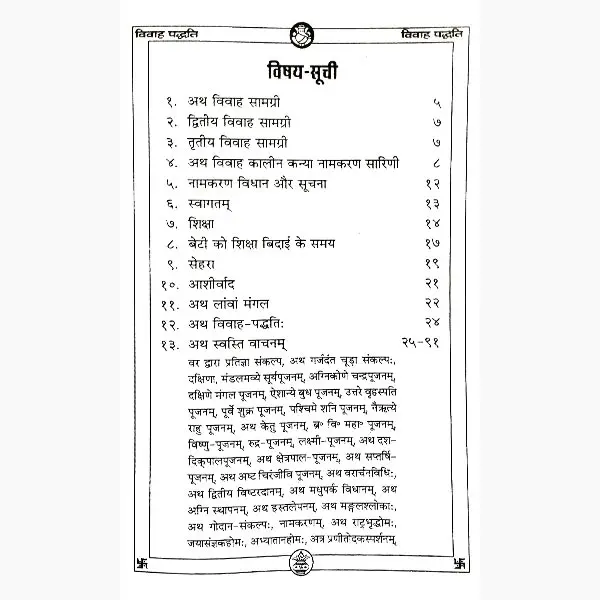 विवाह पद्धति विवाह पद्धति
विषय-सूची
१. अथ विवाह सामग्री ५
२. द्वितीय विवाह सामग्री ७
३. तृतीय विवाह सामग्री ७
४. अथ विवाह कालीन कन्या नामकरण सारिणी ८
५. नामकरण विधान और सूचना १२
६. स्वागतम् १३
७. शिक्षा १४
८. बेटी को शिक्षा बिदाई के समय १७
९. सेहरा १९
१०. आशीर्वाद २१
११. अथ लांवां मंगल २२
१२. अथ विवाह-पद्धतिः २४
१३. अथ स्वस्ति वाचनम् २५-९१
वर द्वारा प्रतिज्ञा संकल्प, अथ गर्जदंत चूड़ा संकल्पः,
दक्षिणा, मंडलमव्ये सूर्यपूजनम्, अग्निकोणे चन्द्रपूजनम्,
दक्षिणे मंगल पूजनम्, ऐशान्ये बुध पूजनम्, उत्तरे वृहस्पति
पूजनम्, पूर्वे शुक्र पूजनम्, पश्चिमे शनि पूजनम्, नैऋत्ये
राहु पूजनम्, अथ केतु पूजनम्, ब्र॰ वि॰ महा॰ पूजनम्,
विष्णु-पूजनम्, रुद्र-पूजनम्, लक्ष्मी-पूजनम्, अथ दश-
दिक्पालपूजनम्, अथ क्षेत्रपाल-पूजनम्, अथ सप्तर्षि-
पूजनम्, अथ अष्ट चिरंजीवि पूजनम्, अथ वरार्चनविधिः,
अथ द्वितीय विष्टरदानम्, अथ मधुपर्क विधानम्, अथ
अग्नि स्थापनम्, अथ हस्तलेपनम्, अथ मङ्गलश्लोकाः,
अथ गोदान-संकल्पः, नामकरणम्, अथ राट्रभृद्धोमः,
जयासंज्ञकहोमः, अभ्यातानहोमः, अत्र प्रणीतोदकस्पर्शनम्